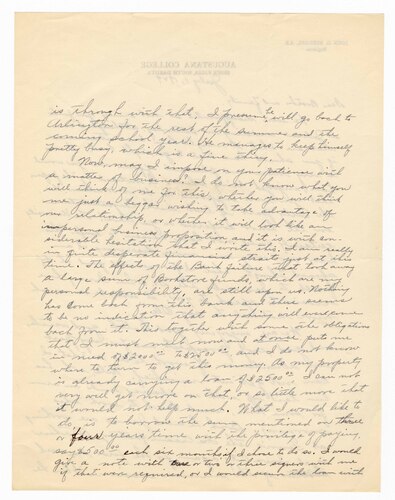 is through with that, I presume he will go back to
Arlington for the rest of the summer and the
coming school year. He manages to keep himself
pretty busy, which is a fine thing.
Now, may I impose on your patience with
a matter of business? I do not know what you
will think of me for this, whether you will think
me just a beggar wishing to take advantage of
our relationship, or whether it will look like an
impersonal business proposition and it is with con-
siderable hesitation that I write this. I am really
in quite desperate financial straits just at this
time. The effects of the Bank failure that took away
a large sum of Bookstore funds, which are my
personal responsibility, are still upon us. Nothing
has come back from this bank and there seems
to be no indication that anything will ever come
back from it. This together with some other obligations
that I must meet now and at once puts me
in need of $2000.00 to $2500.00 and I do not know
where to turn to get this money. As my property
is already carrying a loan of $2500.00 I can not
very well get more on that, or so little more that
it would not help much. What I would like to
do is to borrow the sum mentioned on three
or four years time with the privilege of paying,
say $500.00 each six months if I chose to do so. I would
give a note with one or two or three signers with me
if that were required, or I would secure the loan with